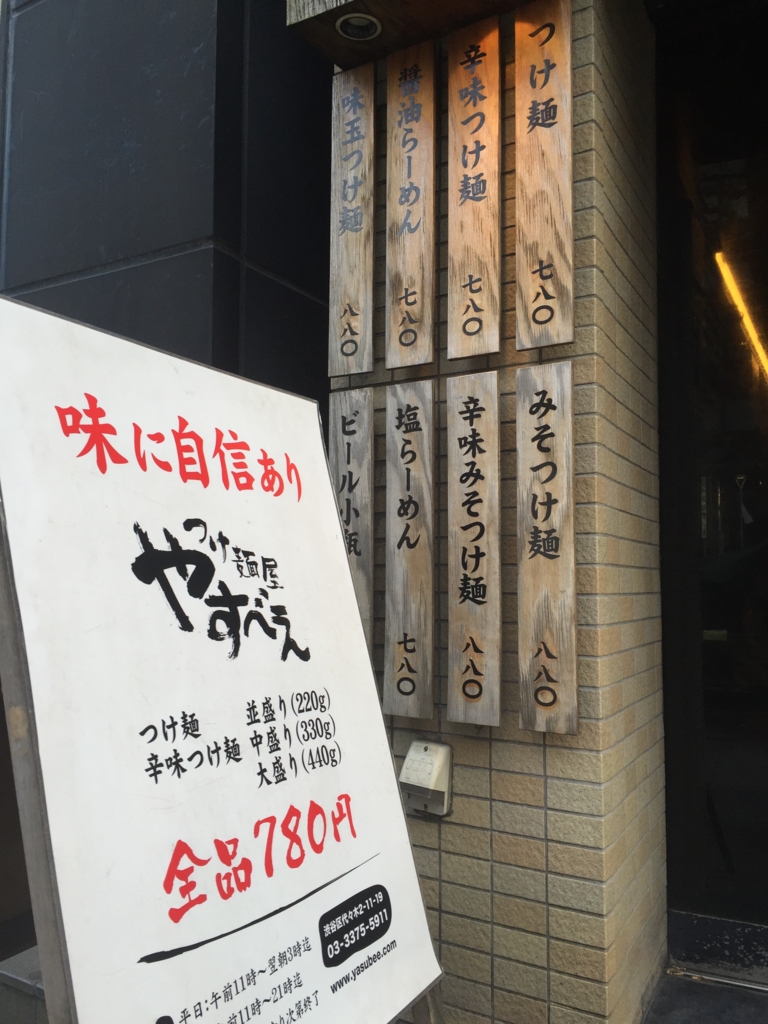 つけ麺 七八〇
辛味つけ麺 七八〇
醤油らーめん 七八〇
味玉つけ麺 八八〇
みそつけ麺 八八〇
辛味みそつけ麺 八八〇
塩らーめん 七八〇
ビール小瓶
味に自信あり
つけ麺屋
やすべえ
つけ麺 並盛り(220g)
辛味つけ麺 中盛り(330g)
大盛り(440g)
全品780円
渋谷区代々木2-11-19
03-3375-5911
www.yasubee.com
平日:午前11時〜翌朝3時迄
午前11時〜21時迄
り次第終了